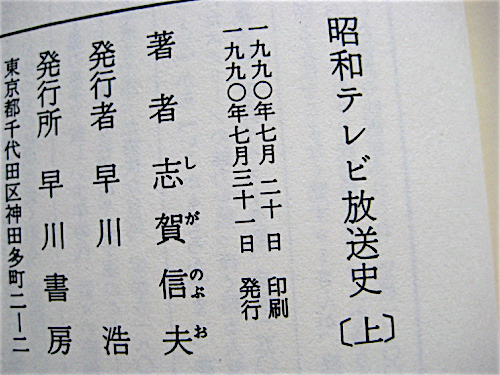 昭和テレビ放送史〔上〕
一九九〇年七月二十日 印刷
一九九〇年七月三十一日 発行
著者 志賀信夫
しがのぶお
発行者 早川 浩
発行所 早川書房
東京都千代田区神田多町二ー二